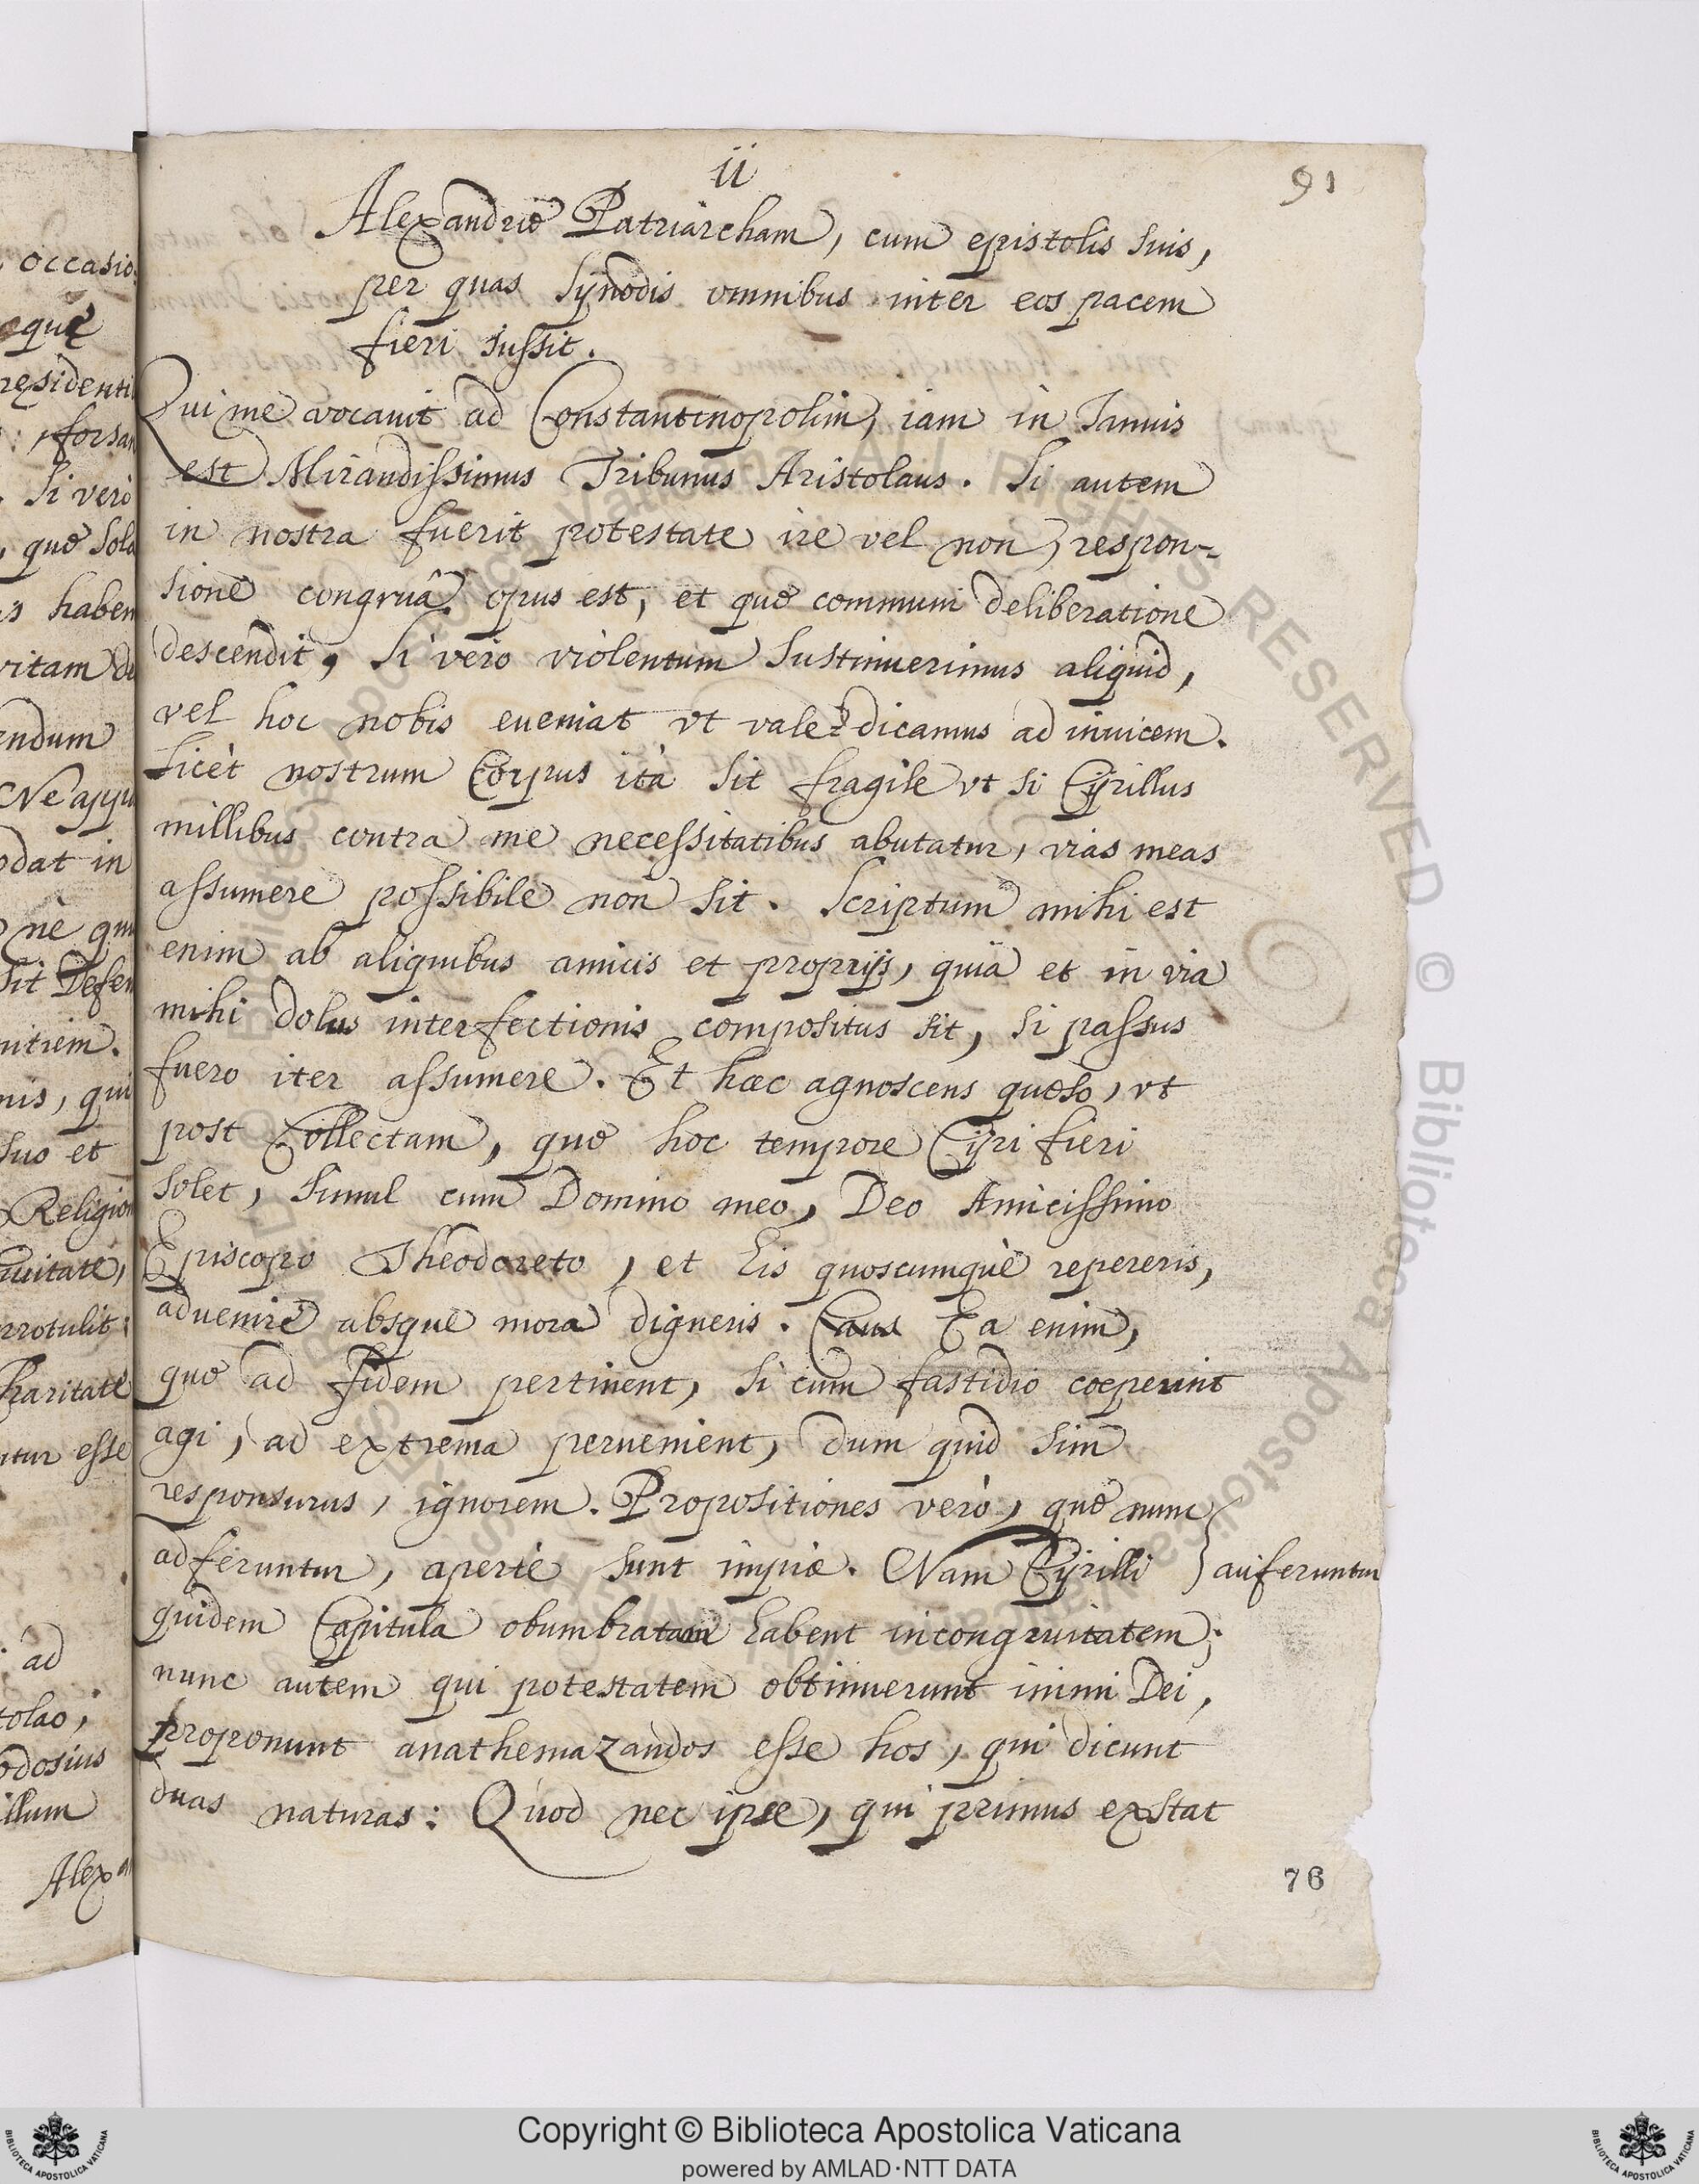 occasio
que
residenti
forsan
Si verò
quę sola
s haben
vitam de
endum
Ne appu
odat in
ne qui
sit Defen
nitiem.
nis, qui
suo et
Religion
Ciuitate,
protulit:
haritate
ntur esse
ad
tolao,
odosius
illum
Alexan
ii
91
Alexandrię Patriarcham, cum epistolis suis,
per quas Synodis omnibus inter eos pacem
fieri iussit.
Qui me vocauit ad Constantinopolim, iam in Ianuis
est Mirandissimus Tribunus Aristolaus. Si autem
in nostra fuerit protestate ire vel non, respon-
sione congruâ opus est, et quę communi deliberatione
descendit, Si vero violentum sustinuerimus aliquid,
vel hoc nobis eueniat vt vale dicamus ad inuicem.
Licèt nostrum Corpus ità sit fragile vt si Cyrillus
millibus contra me necessitatibus abutatur, vias meas
assumere possibile non sit. Scriptum mihi est
enim ab aliquibus amicis et proprijs, quia et in via
mihi dolus interfectionis compositus sit, si passus
fuero iter assumere. Et hæc agnoscens quęso, vt
post Collectam, quę hoc tempore Cyri fieri
solet, simul cum Domino meo, Deo Amicissimo
Episcopo Theodoreto, et Eis quoscumquè repereris,
aduenire absque mora digneris. Caus Ea enim,
quę ad fidem pertinent, si cum fastidio coeperint
agi, ad extrema peruenient, dum quid sim
responsurus, ignorem. Propositiones verò, quę nunc
adferuntur, apertè sunt impiæ. Nam Cyrilli } auferuntur
quidem Capitula obumbratam habent incongruitatem;
nunc autem qui potestatem obtinuerunt inimi Dei,
proponunt anathemazandos esse hos, qui dicunt
duas naturas: Quod nec ipse, qui primus exstat
76
© Biblioteca Apostolica Vaticana ALL RIGHTS RESERVED
Copyright © Biblioteca Apostolica Vaticana
powered by AMLAD·NTT DATA
BIBLIOTECA APOSTOLICA VATICANA
BIBLIOTECA APOSTOLICA VATICANA